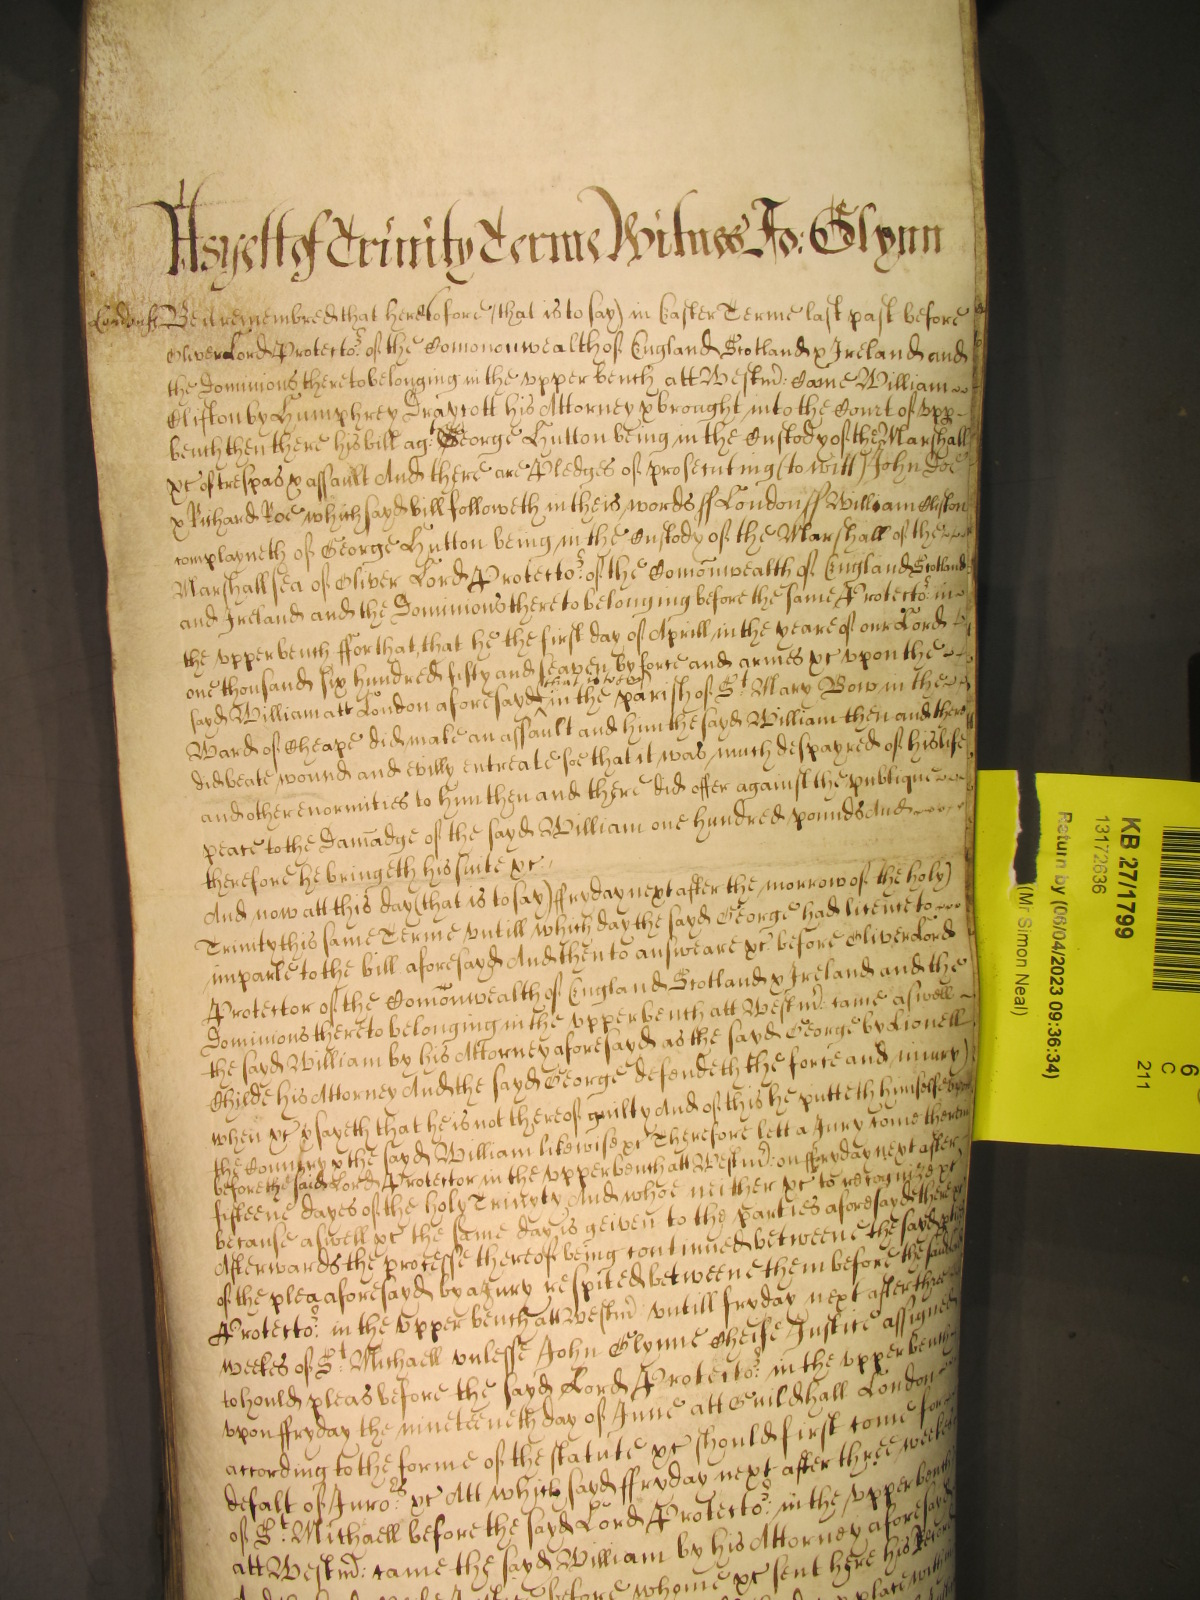 As yett of Trinity Terme Witnes Jo: Glynn
London ss Be it remembred that heretofore (that is to say) in Easter Terme last past before
Oliver Lord Protector of the Comonwealth of England Scotland & Ireland and
the Dominions thereto belonging in the upper bench att Westmr: Came William
Clifton by Humphrey Draycott his Attorney & brought into the Court of upp
bench then there his bill agt George Hutton being in the Custody of the Marshall
&c of trespas & assault And there are Pledges of prosecuting (to witt) John Doe
& Richard Roe which sayd bill followeth in theis words ss London ss William Clifton
complayneth of George Hutton being in the Custody of the Marshall of the
Marshallsea of Oliver Lord Protector of the Comonwealth of England Scotland
and Ireland and the Dominions thereto belonging before the same Protector in
the upper bench ffor that, that he the first day of Aprill in the yeare of our Lord
one thousand six hundred fifty and seaven by force and armes &c upon the
sayd William att London aforesayd that is to say in the parish of St Mary Bow in the
Ward of Cheape did make an assault and him the sayd William then and there
did beate wound and evilly entreate soe that it was much despayred of his life
and other enormities to him then and there did offer against the publique
peace to the Damadge of the sayd William one hundred pounds And
therefore he bringeth his suite &c.
And now att this day (that is to say) ffryday next after the morrow of the holy
Trinity this same Terme untill which day the sayd George had licence to
imparle to the bill aforesayd And then to answeare &c before Oliver Lord
Protector of the Comonwealth of England Scotland & Ireland and the
Dominions thereto belonging in the upper bench att Westmr: came aswell
the sayd William by his Attorney aforesayd as the sayd George by Lionell
Childe his Attorney And the sayd George defendeth the force and iniury
when &c & sayeth that he is not thereof guilty And of this he putteth himselfe upon
the Country & the sayd William likewise &c Therefore lett a Jury come
before the said Lord Protector in the upper bench att Westmr: on ffryday next after
fifteene dayes of the holy Trinity And whoe neither &c to recognize &c
because aswell &c the same day is geiven to the parties aforesayd there
Afterwards the processe thereof being continued betweene the sayd
of the plea aforesayd by a Jury respited betweene them before the said
Protector in the upper bench att Westmr untill fryday next after three
weekes of St Michaell unlesse John Glynne Cheife Justice assigned
to hould pleas before the sayd Lord Protector in the upper bench
upon ffryday the nineteeneth day of June att Guildhall London
according to the forme of the statute &c should first come for
defalt of Jurors &c Att which sayd ffryday next after three weekes
of St Michaell before the sayd Lord Protector in the upper bench
att Westmr: came the sayd William by his Attorney aforesayd
before whome &c sent here his Record
KB 27/1799
13172636
Return by (06/04/2023 09:36:34)
(Mr Simon Neal)
6
C
211